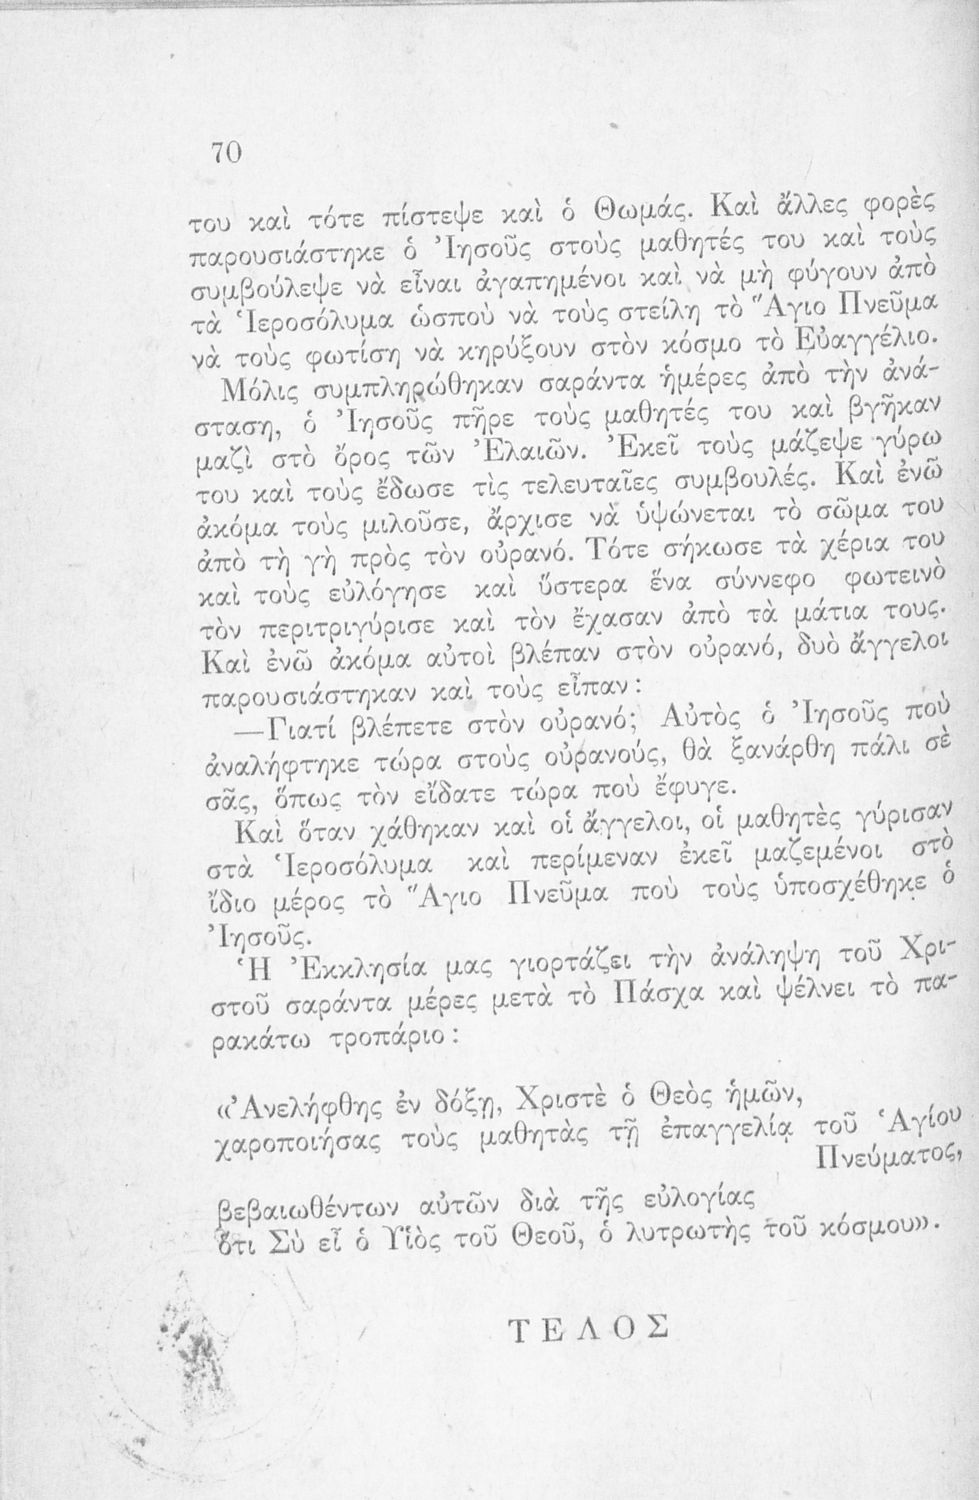 70
του καὶ τότε πίστεψε καὶ ὁ Θωμάς. Καὶ ἄλλες φορὲς
παρουσιάστηκε ὁ Ἰησοῦς στοὺς μαθητές του καὶ τοὺς
συμβούλεψε νὰ εἶναι ἀγαπημένοι καὶ νὰ μὴ φύγουν ἀπὸ
τὰ Ἱεροσόλυμα ὡσποὺ νὰ τοὺς στείλη τὸ Ἅγιο Πνεῦμα
νὰ τοὺς φωτίση νὰ κηρύξουν στὸν κόσμο τὸ Εὐαγγέλιο.
Μόλις συμπληρώθηκαν σαράντα ἡμέρες ἀπὸ τὴν ἀνά-
σταση, ὁ Ἰησοῦς πῆρε τοὺς μαθητές του καὶ βγῆκαν
μαζὶ στὸ ὄρος τῶν Ἐλαιῶν. Ἐκεῖ τοὺς μάζεψε γύρω
του καὶ τοὺς ἔδωσε τὶς τελευταῖες συμβουλές. Καὶ ἐνῶ
ἀκόμα τοὺς μιλοῦσε, ἄρχισε νὰ ὑψώνεται τὸ σῶμα του
ἀπὸ τὴ γὴ πρὸς τὸν οὐρανό. Τότε σήκωσε τὰ χέρια του
καὶ τοὺς εὐλόγησε καὶ ὕστερα ἕνα σύννεφο φωτεινὸ
τὸν περιτριγύρισε καὶ τὸν ἔχασαν ἀπὸ τὰ μάτια τους.
Καὶ ἐνῶ ἀκόμα αὐτοὶ βλέπαν στὸν οὐρανό, δυὸ ἄγγελοι
παρουσιάστηκαν καὶ τοὺς εἶπαν:
—Γιατί βλέπετε στὸν οὐρανό; Αὐτὸς ὁ Ἰησοῦς ποὺ
ἀναλήφτηκε τώρα στοὺς οὐρανούς, θὰ ξανάρθη πάλι σὲ
σᾶς, ὅπως τὸν εἴδατε τώρα ποὺ ἔφυγε.
Καὶ ὅταν χάθηκαν καὶ οἱ ἄγγελοι, οἱ μαθητὲς γύρισαν
στὰ Ἱεροσόλυμα καὶ περίμεναν ἐκεῖ μαζεμένοι στὸ
ἴδιο μέρος τὸ Ἅγιο Πνεῦμα ποὺ τοὺς ὑποσχέθηκε ὁ
Ἰησοῦς.
Ἡ Ἐκκλησία μας γιορτάζει τὴν ἀνάληψη τοῦ Χρι-
στοῦ σαράντα μέρες μετὰ τὸ Πάσχα καὶ ψέλνει τὸ πα-
ρακάτω τροπάριο:
«Ἀνελήφθης ἐν δόξῃ, Χριστὲ ὁ Θεὸς ἡμῶν,
χαροποιήσας τοὺς μαθητὰς τῇ ἐπαγγελίᾳ τοῦ Ἁγίου
Πνεύματος,
βεβαιωθέντων αὐτῶν διὰ τῆς εὐλογίας
ὅτι Σὺ εἶ ὁ Υἱὸς τοῦ Θεοῦ, ὁ λυτρωτὴς τοῦ κόσμου».
ΤΕΛΟΣ